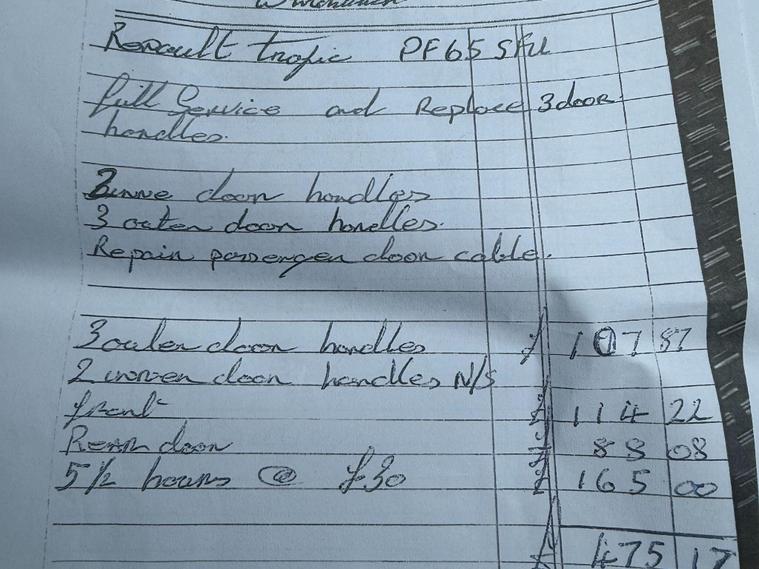 Renault trafic PF65 SFU
full Service and Replace 3 door
handles.
2 inne door handles
3 outer door handles.
Repair passenger door cable.
3 outer door handles £ 107 87
2 inner door handles N/S
front £ 114 22
Rear door £ 88 08
5 1/2 hours @ £30 £ 165 00
£ 475 17